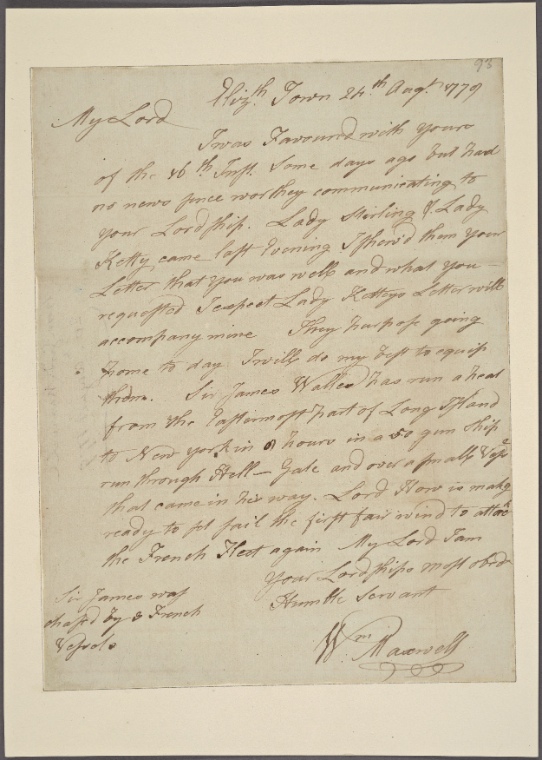 93
Elizth. Town 24th Augt. 1779
My Lord
I was Favourd with yours
of the 16th Inst. Some days ago but had
no news since worthey communicating to
your Lordship. Lady Stirling & Lady
Ketty, came last Evening I shew'd them your
Letter that you was well and what you
requested I expect Lady Kettys Letter will
accompany mine They purpose going
home to day I will do my best to equip
them. Sir James Wallee has run a heat
from the Easternost part of Long Island
to New york in 8 hours in a 50 gun ship
run through Hell-Gate and over a small Vessl
that came in her way. Lord How is makg
ready to set sail the first fair wind to attack
the French Fleet again My Lord I am
your Lordships most obedt
Humble Servant
Wm. Maxwell
Sir James was
chased by 8 French
Vessels